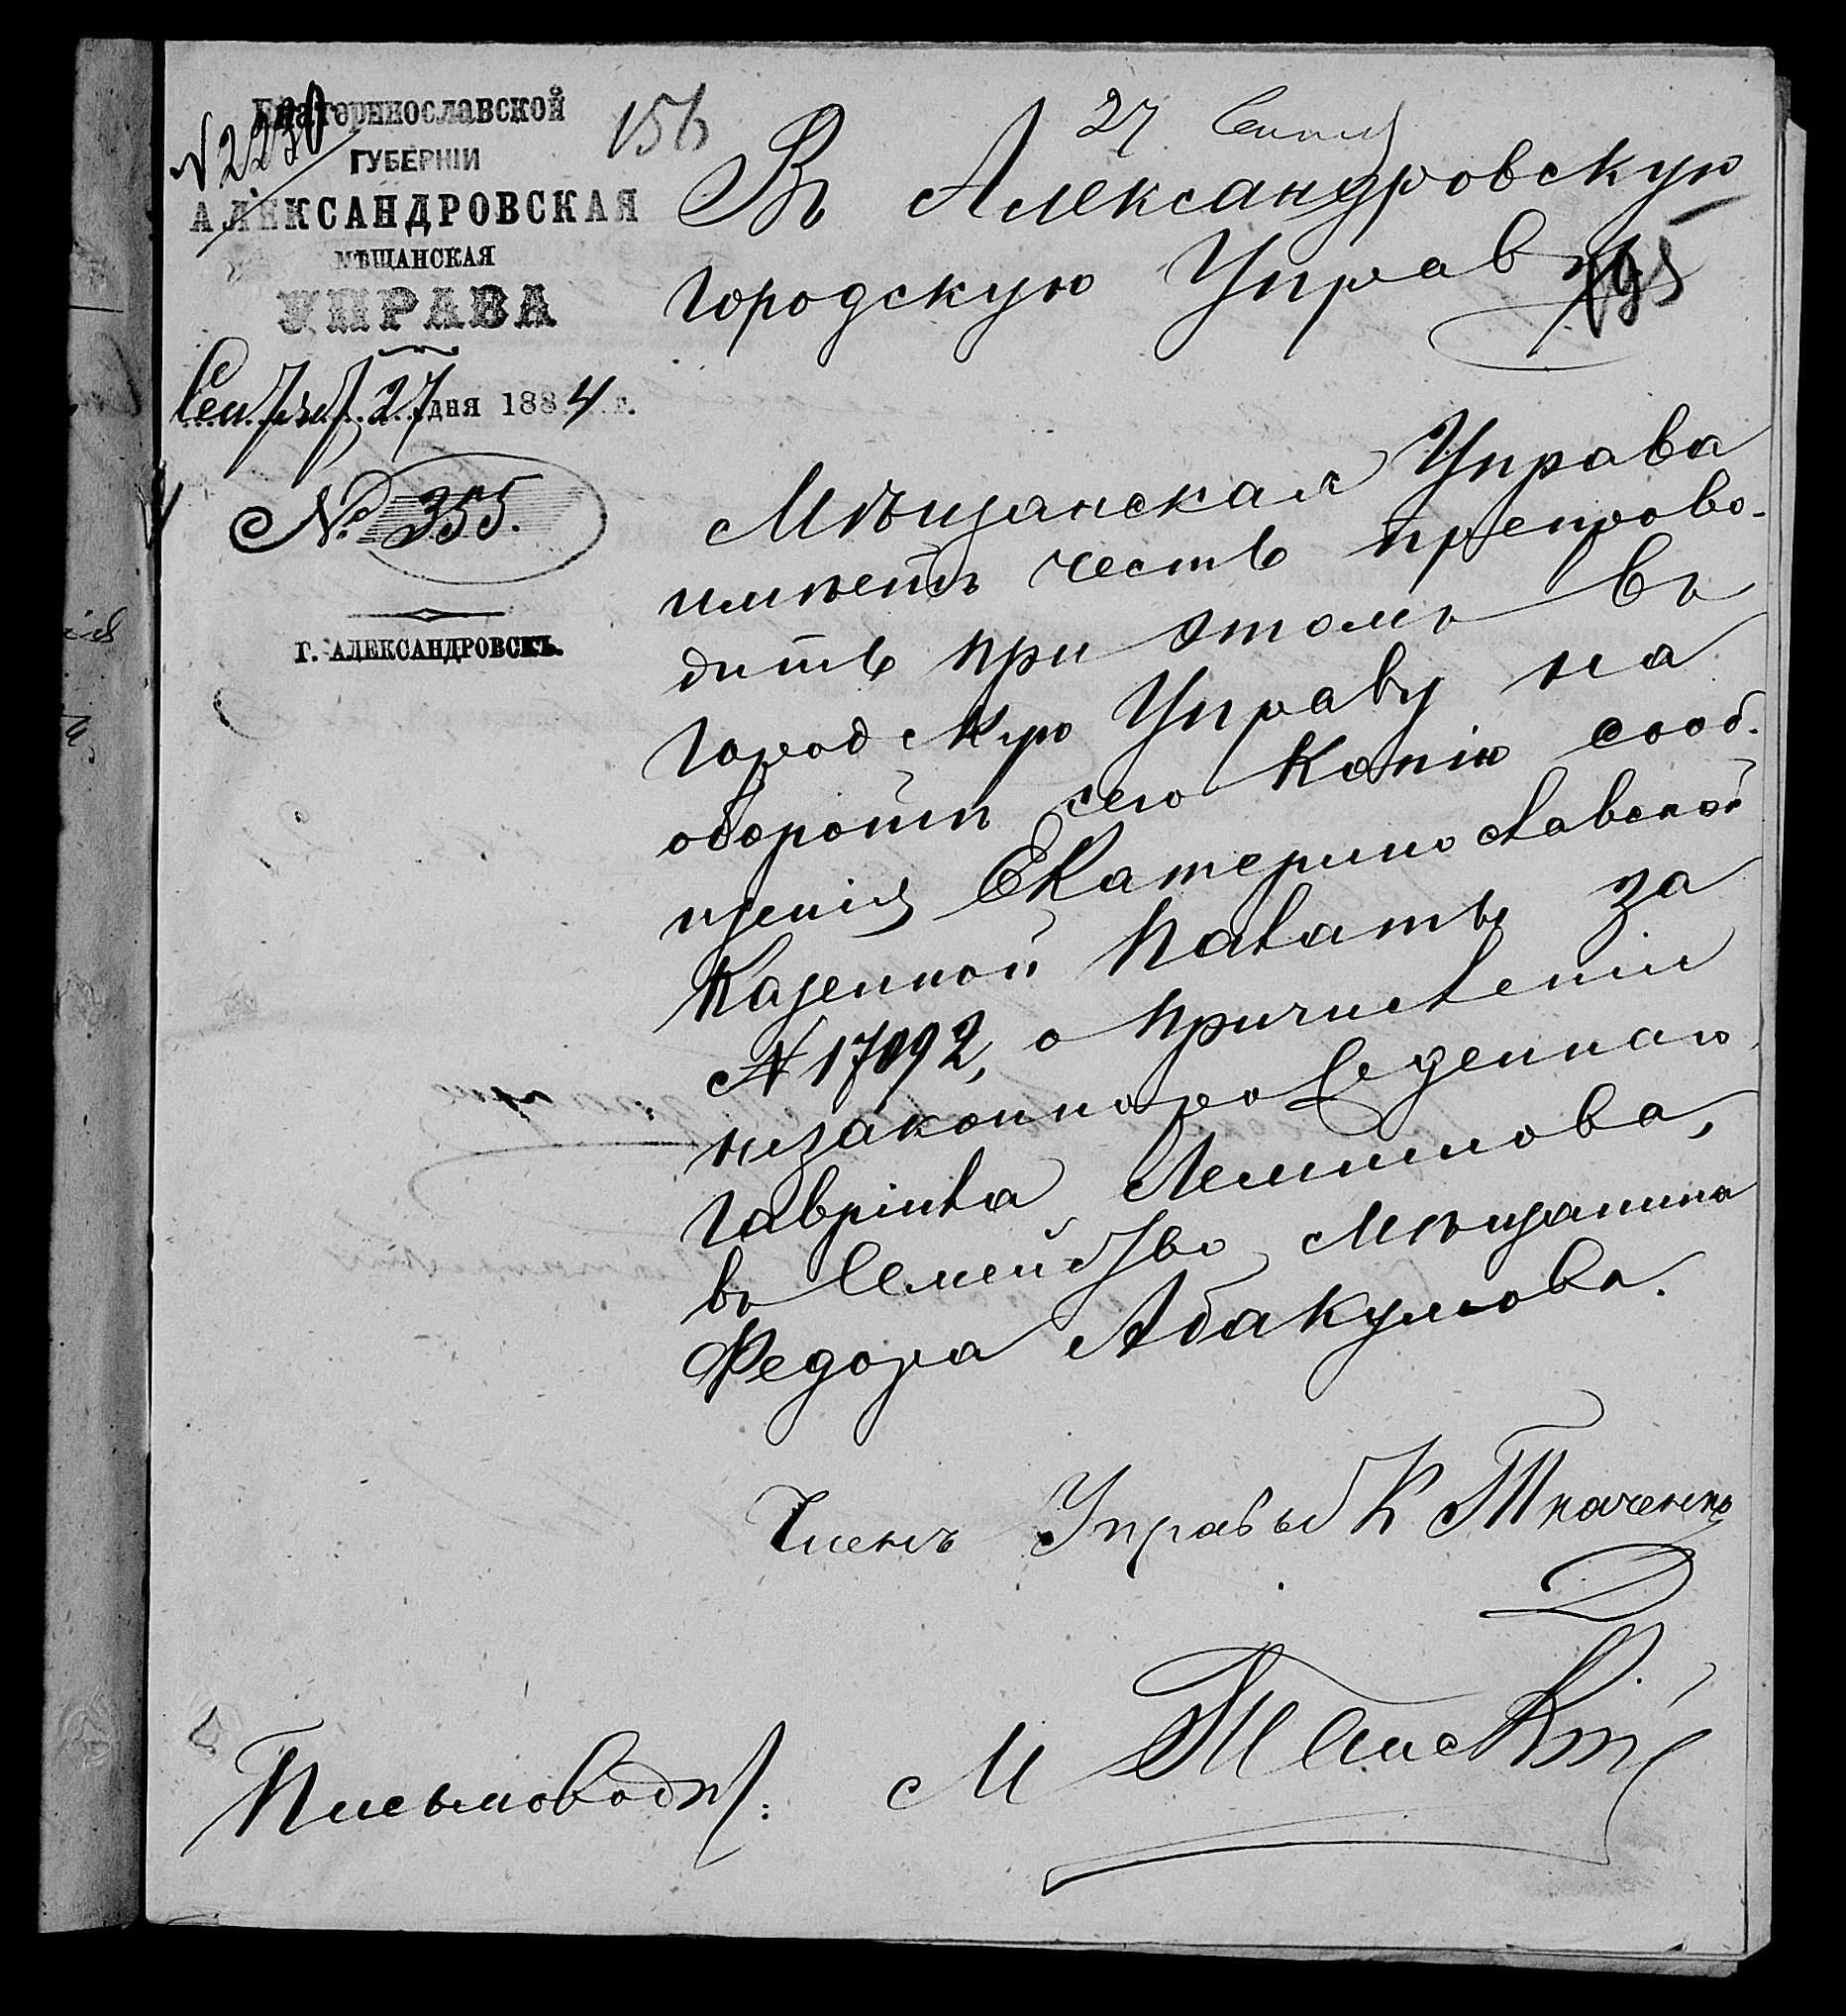 Екатеринославской
ГУБЕРНІИ
АЛЕКСАНДРОВСКАЯ
МѢЩАНСКАЯ
УПРАВА
Сентября 27 дня 1884 г.
№ 355.
Г. АЛЕКСАНДРОВСКЪ.
№ 2230
156
27 Сент
195
Въ Александровскую
Городскую Управу
Мѣщанская Управа
имѣетъ честь препрово-
дить при этомъ въ
Городскую Управу на
оборотѣ сего Копію сооб-
щенія Екатеринославской
Казенной Палаты за
№ 17092, о причисленіи
незаконнорожденнаго
Гавріила
въ Семейство Мѣщанина
Федора Абакумова.
Членъ Управы К Ткаченко
Письмовод: М